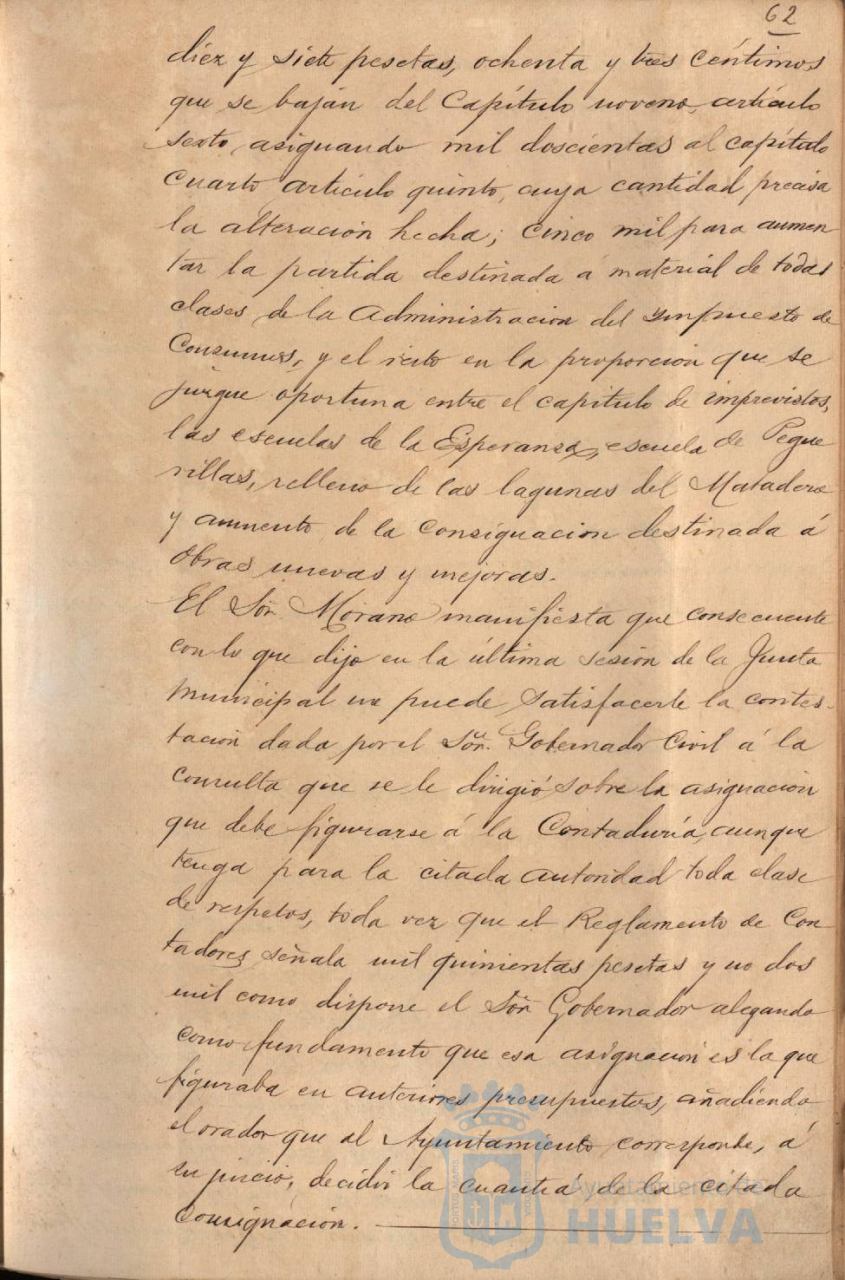 62
diez y siete pesetas, ochenta y tres céntimos
que se bajan del Capítulo noveno, artículo
sexto, asignando mil doscientas al capítulo
cuarto, artículo quinto, cuya cantidad precisa
la alteración hecha; cinco mil para aumen-
tar la partida destinada á material de todas
clases de la Administración del Impuesto de
Consumos, y el resto en la proporción que se
juzgue oportuna entre el capítulo de imprevistos,
las escuelas de la Esperanza, escuela de Pegue
rillas, relleno de las lagunas del Matadero
y aumento de la consignación destinada á
obras nuevas y mejoras.
El Sor. Morano manifiesta que consecuente
con lo que dijo en la última sesión de la Junta
Municipal no puede satisfacerle la contes-
tación dada por el Sor. Gobernador Civil á la
consulta que se le dirigió sobre la asignación
que debe figurarse á la Contaduría, aunque
tenga para la citada autoridad toda clase
de respetos, toda vez que el Reglamento de Con
tadores señala mil quinientas pesetas y no dos
mil como dispone el Sor. Gobernador alegando
como fundamento que esa asignación es la que
figuraba en anteriores presupuestos, añadiendo
el orador que al Ayuntamiento corresponde, á
su juicio, decidir la cuantía de la citada
consignación.
Ayuntamiento de
HUELVA